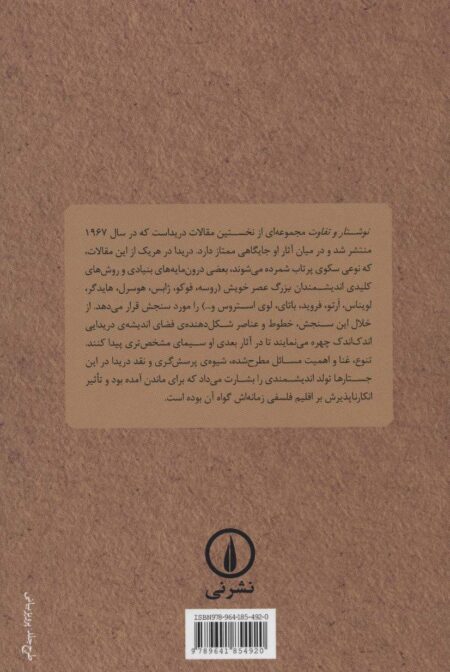 نوشتار و تفاوت مجموعه‌ای از نخستین مقالات دریداست که در سال ۱۹۶۷
منتشر شد و در میان آثار او جایگاهی ممتاز دارد. دریدا در هریک از این مقالات،
که نوعی سکوی پرتاب شمرده می‌شوند، بعضی درون‌مایه‌های بنیادی و روش‌های
کلیدی اندیشمندان بزرگ عصر خویش (روسه، فوکو، ژابس، هوسرل، هایدگر،
لویناس، آرتو، فروید، باتای، لوی استروس و...) را مورد سنجش قرار می‌دهد. از
خلال این سنجش، خطوط و عناصر شکل‌دهنده‌ی فضای اندیشه‌ی دریدایی
اندک‌اندک چهره می‌نمایند تا در آثار بعدی او سیمای مشخص‌تری پیدا کنند.
تنوع، غنا و اهمیت مسائل مطرح‌شده، شیوه‌ی پرسش‌گری و نقد دریدا در این
جستارها تولد اندیشمندی را بشارت می‌داد که برای ماندن آمده بود و تأثیر
انکارناپذیرش بر اقلیم فلسفی زمانه‌اش گواه آن بوده است.
نشرنی
ISBN978-964-185-492-0
9789641854920
طرح جلد: پرویز بیانی